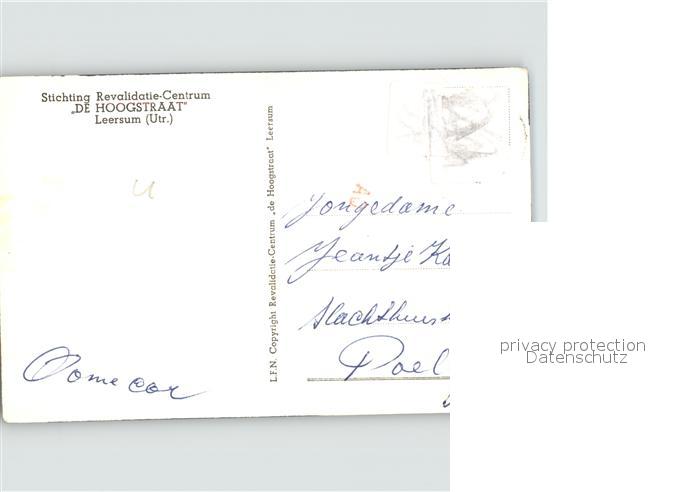 Stichting Revalidatie-Centrum
„DE HOOGSTRAAT"
Leersum (Utr.)
L.F.N. Copyright Revalidatie-Centrum „de Hoogstraat" Leersum
Jongedame
Jeantje Ka
Slachthuis
Poel
Oome Cor
privacy protection
Datenschutz